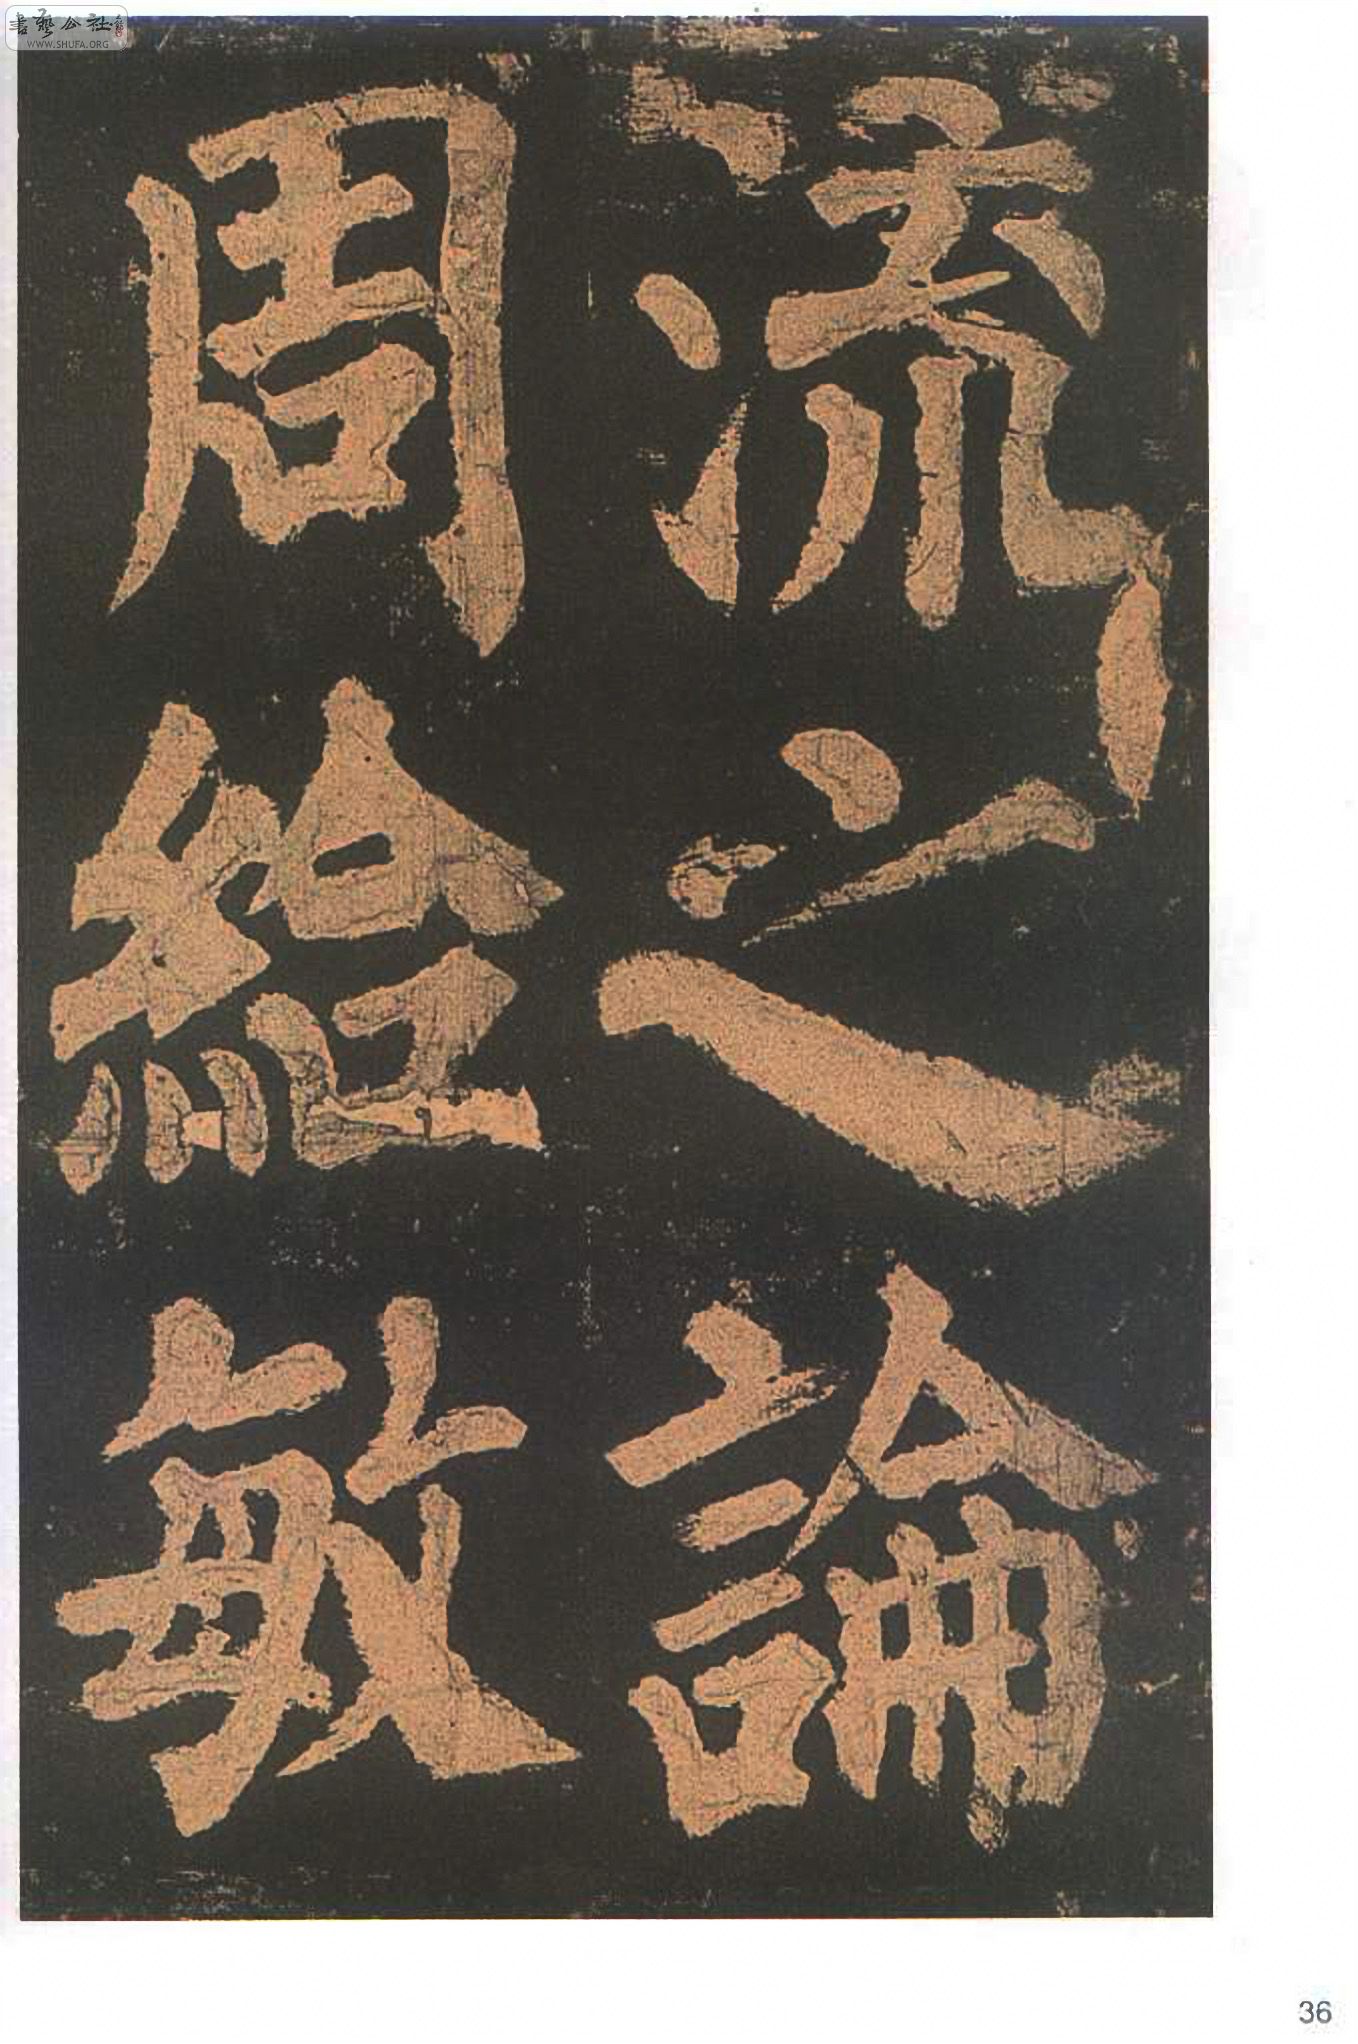 流之論
周給敏
書藝公社
WWW.SHUFA.ORG
36